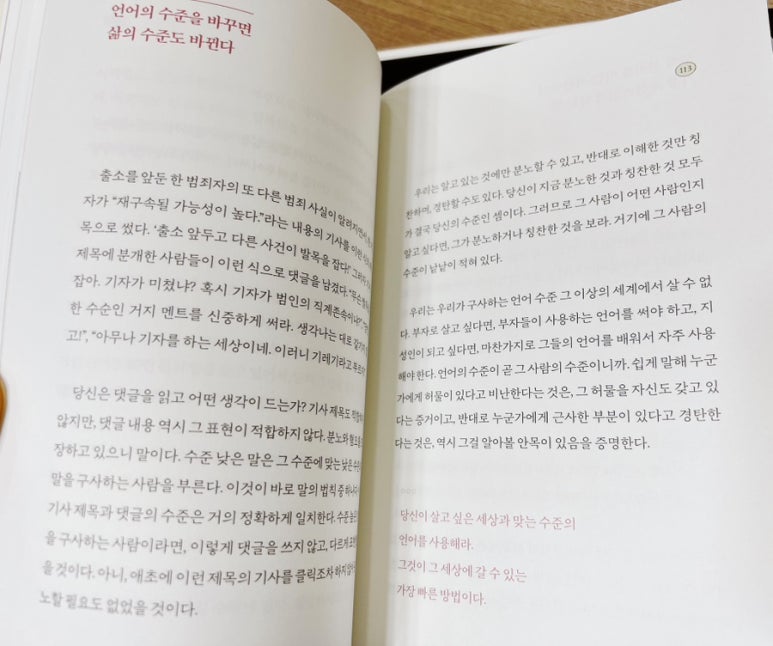 언어의 수준을 바꾸면
삶의 수준도 바뀐다
출소를 앞둔 한 범죄자의 또 다른 범죄 사실이 알려지면서,
자가 "재구속될 가능성이 높다."라는 내용의 기사를 이런
목으로 썼다. '출소 앞두고 다른 사건이 발목을 잡다'
제목에 분개한 사람들이 이런 식으로 댓글을 남겼다.
잡아. 기자가 미쳤냐? 혹시 기자가 범인의 직계존속이냐?"
한 수순인 거지 멘트를 신중하게 써라. 생각나는 대로
고!", "아무나 기자를 하는 세상이네. 이러니 기레기라고
당신은 댓글을 읽고 어떤 생각이 드는가? 기사 제목도
않지만, 댓글 내용 역시 그 표현이 적합하지 않다. 분노와
장하고 있으니 말이다. 수준 낮은 말은 그 수준에 맞는 낮은
말을 구사하는 사람을 부른다. 이것이 바로 말의 법칙 중
기사 제목과 댓글의 수준은 거의 정확하게 일치한다.
을 구사하는 사람이라면, 이렇게 댓글을 쓰지 않고,
을 것이다. 아니, 애초에 이런 제목의 기사를 클릭조차 하지
노할 필요도 없었을 것이다.
113
우리는 알고 있는 것에만 분노할 수 있고, 반대로 이해한 것만 칭
찬하며, 경탄할 수도 있다. 당신이 지금 분노한 것과 칭찬한 것 모두
가 결국 당신의 수준인 셈이다. 그러므로 그 사람이 어떤 사람인지
알고 싶다면, 그가 분노하거나 칭찬한 것을 보라. 거기에 그 사람의
수준이 낱낱이 적혀 있다.
우리는 우리가 구사하는 언어 수준 그 이상의 세계에서 살 수 없
다. 부자로 살고 싶다면, 부자들이 사용하는 언어를 써야 하고, 지
성인이 되고 싶다면, 마찬가지로 그들의 언어를 배워서 자주 사용
해야 한다. 언어의 수준이 곧 그 사람의 수준이니까. 쉽게 말해 누군
가에게 허물이 있다고 비난한다는 것은, 그 허물을 자신도 갖고 있
다는 증거이고, 반대로 누군가에게 근사한 부분이 있다고 경탄한
다는 것은, 역시 그걸 알아볼 안목이 있음을 증명한다.
당신이 살고 싶은 세상과 맞는 수준의
언어를 사용해라.
그것이 그 세상에 갈 수 있는
가장 빠른 방법이다.